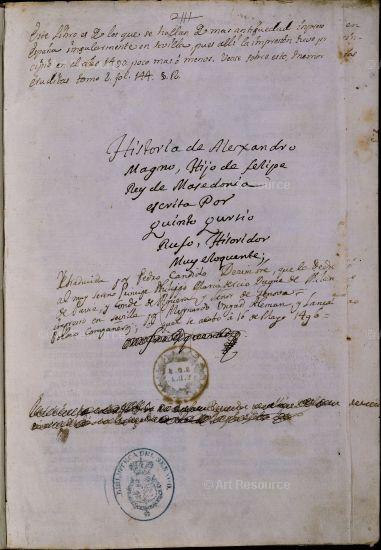 Este Libro es De los que se hallan De mas antiguedad impreso en
España singularmente en Sevilla, pues allí la imprenta tuvo prin
cipio en el año 1490 poco mas ó menos. Vease sobre esto,
eruditas tomo 2. fol. 144. §.
Historia de Alexandro
Magno, Hijo de felipe
Rey de Masedonia
escrita Por
Quinto Qursio
Rufo, Hisoridor
Muy eloquente;
traduzida por Pedro Candido que lo dedi
al muy Sermo Principe Philippo Maria Duque de Milan
de Pavia y Conde de y Señor de Genova
impreso en Sevilla por Meynardo Ungut Aleman, y Lançal
Polaco Compañeros; q se acabó á 16 de Mayo 1496
BIBLIOTECA DEL SENADO
© Art Resource
© Art Resource